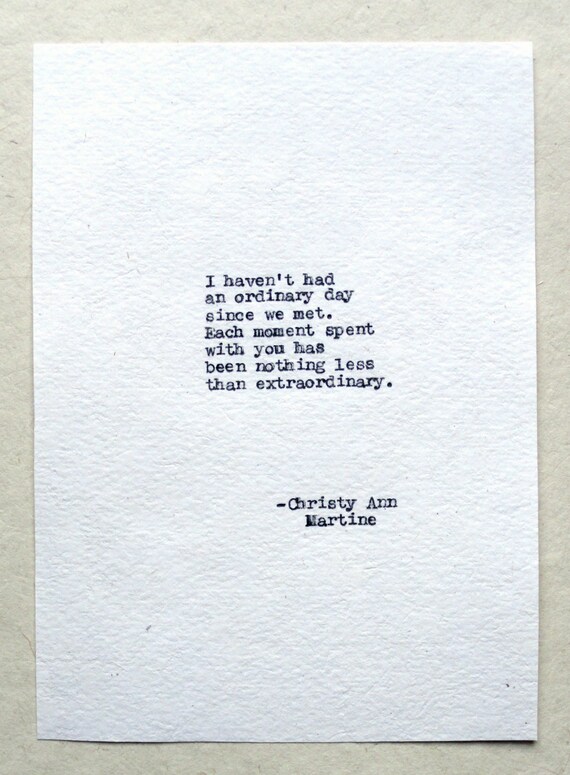 I haven't had
an ordinary day
since we met.
Each moment spent
with you has
been nothing less
than extraordinary.
-Christy Ann
Martine